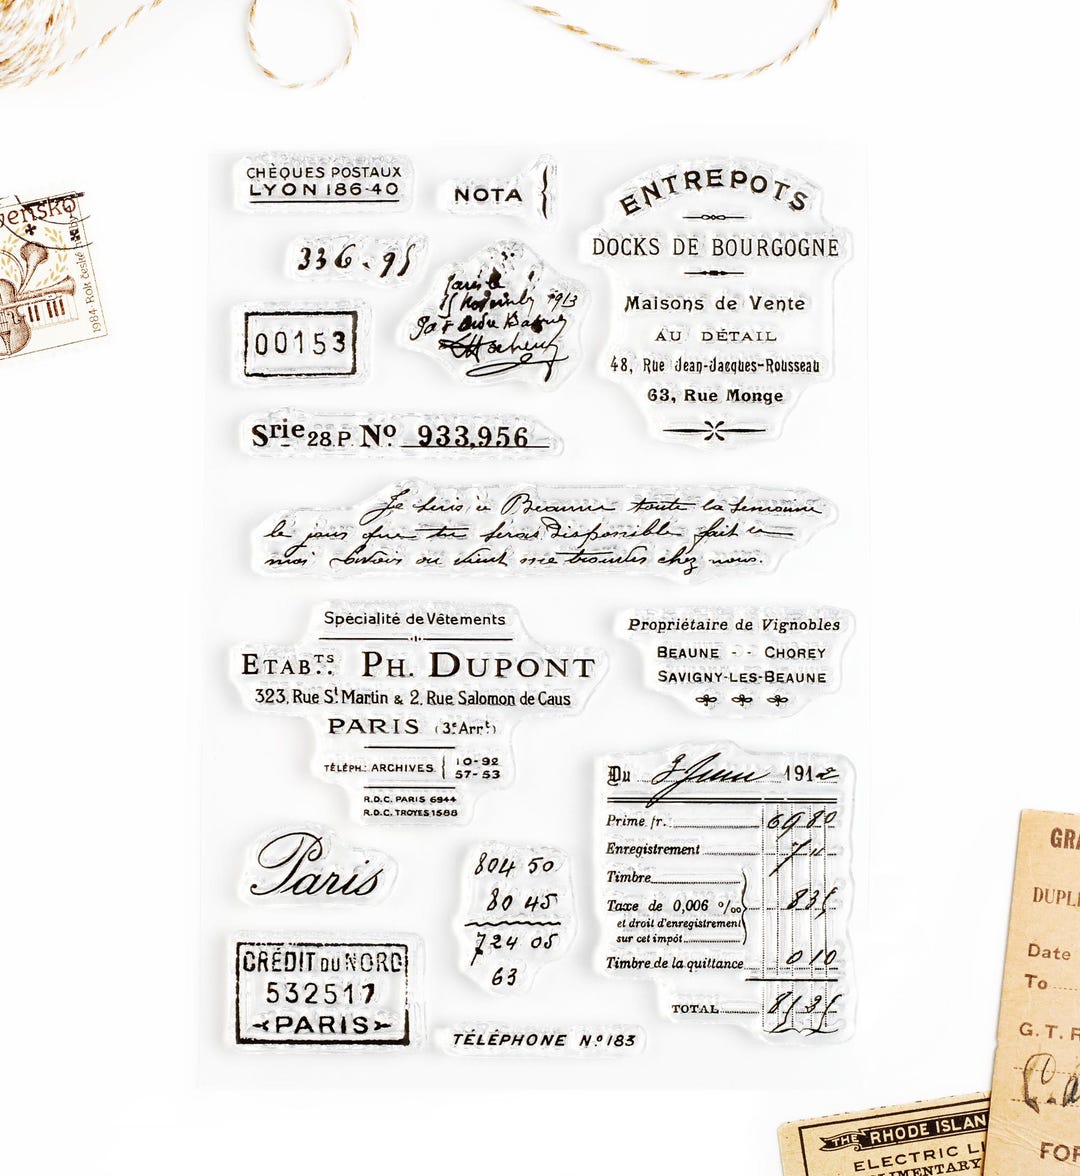 CHÈQUES POSTAUX
LYON 186-40
NOTA {
336.95
00153
Paris le
15 Novembre 1913
ENTREPOTS
DOCKS DE BOURGOGNE
Maisons de Vente
AU DÉTAIL
48, Rue Jean-Jacques-Rousseau
63, Rue Monge
Srie 28.P. Nº 933,956
Je suis à Beaune toute la semaine
le jour que tu seras Disponible fait le
moi savoir ou vient me trouver chez nous.
Spécialité de Vêtements
ETABTS. PH. DUPONT
323, Rue St Martin & 2, Rue Salomon de Caus
PARIS (3e Arrt)
TÉLÉPH.: ARCHIVES { 10-92
57-53
R.D.C. PARIS 6944
R.D.C. TROYES 1588
Propriétaire de Vignobles
BEAUNE - - CHOREY
SAVIGNY-LES-BEAUNE
Du 3 Juin 1912
Prime fr.
69 80
Enregistrement
7 "
Timbre
Taxe de 0,006 º/oo
et droit d'enregistrement
sur cet impôt
8 35
Timbre de la quittance
0 10
TOTAL
85 35
Paris
804 50
80 45
724 05
63
CRÉDIT DU NORD
532517
PARIS
TÉLÉPHONE Nº 183
vensko
1984 · Rok české
DUPLI
Date
To
G. T. R
FOR
THE RHODE ISLAN
ELECTRIC LI